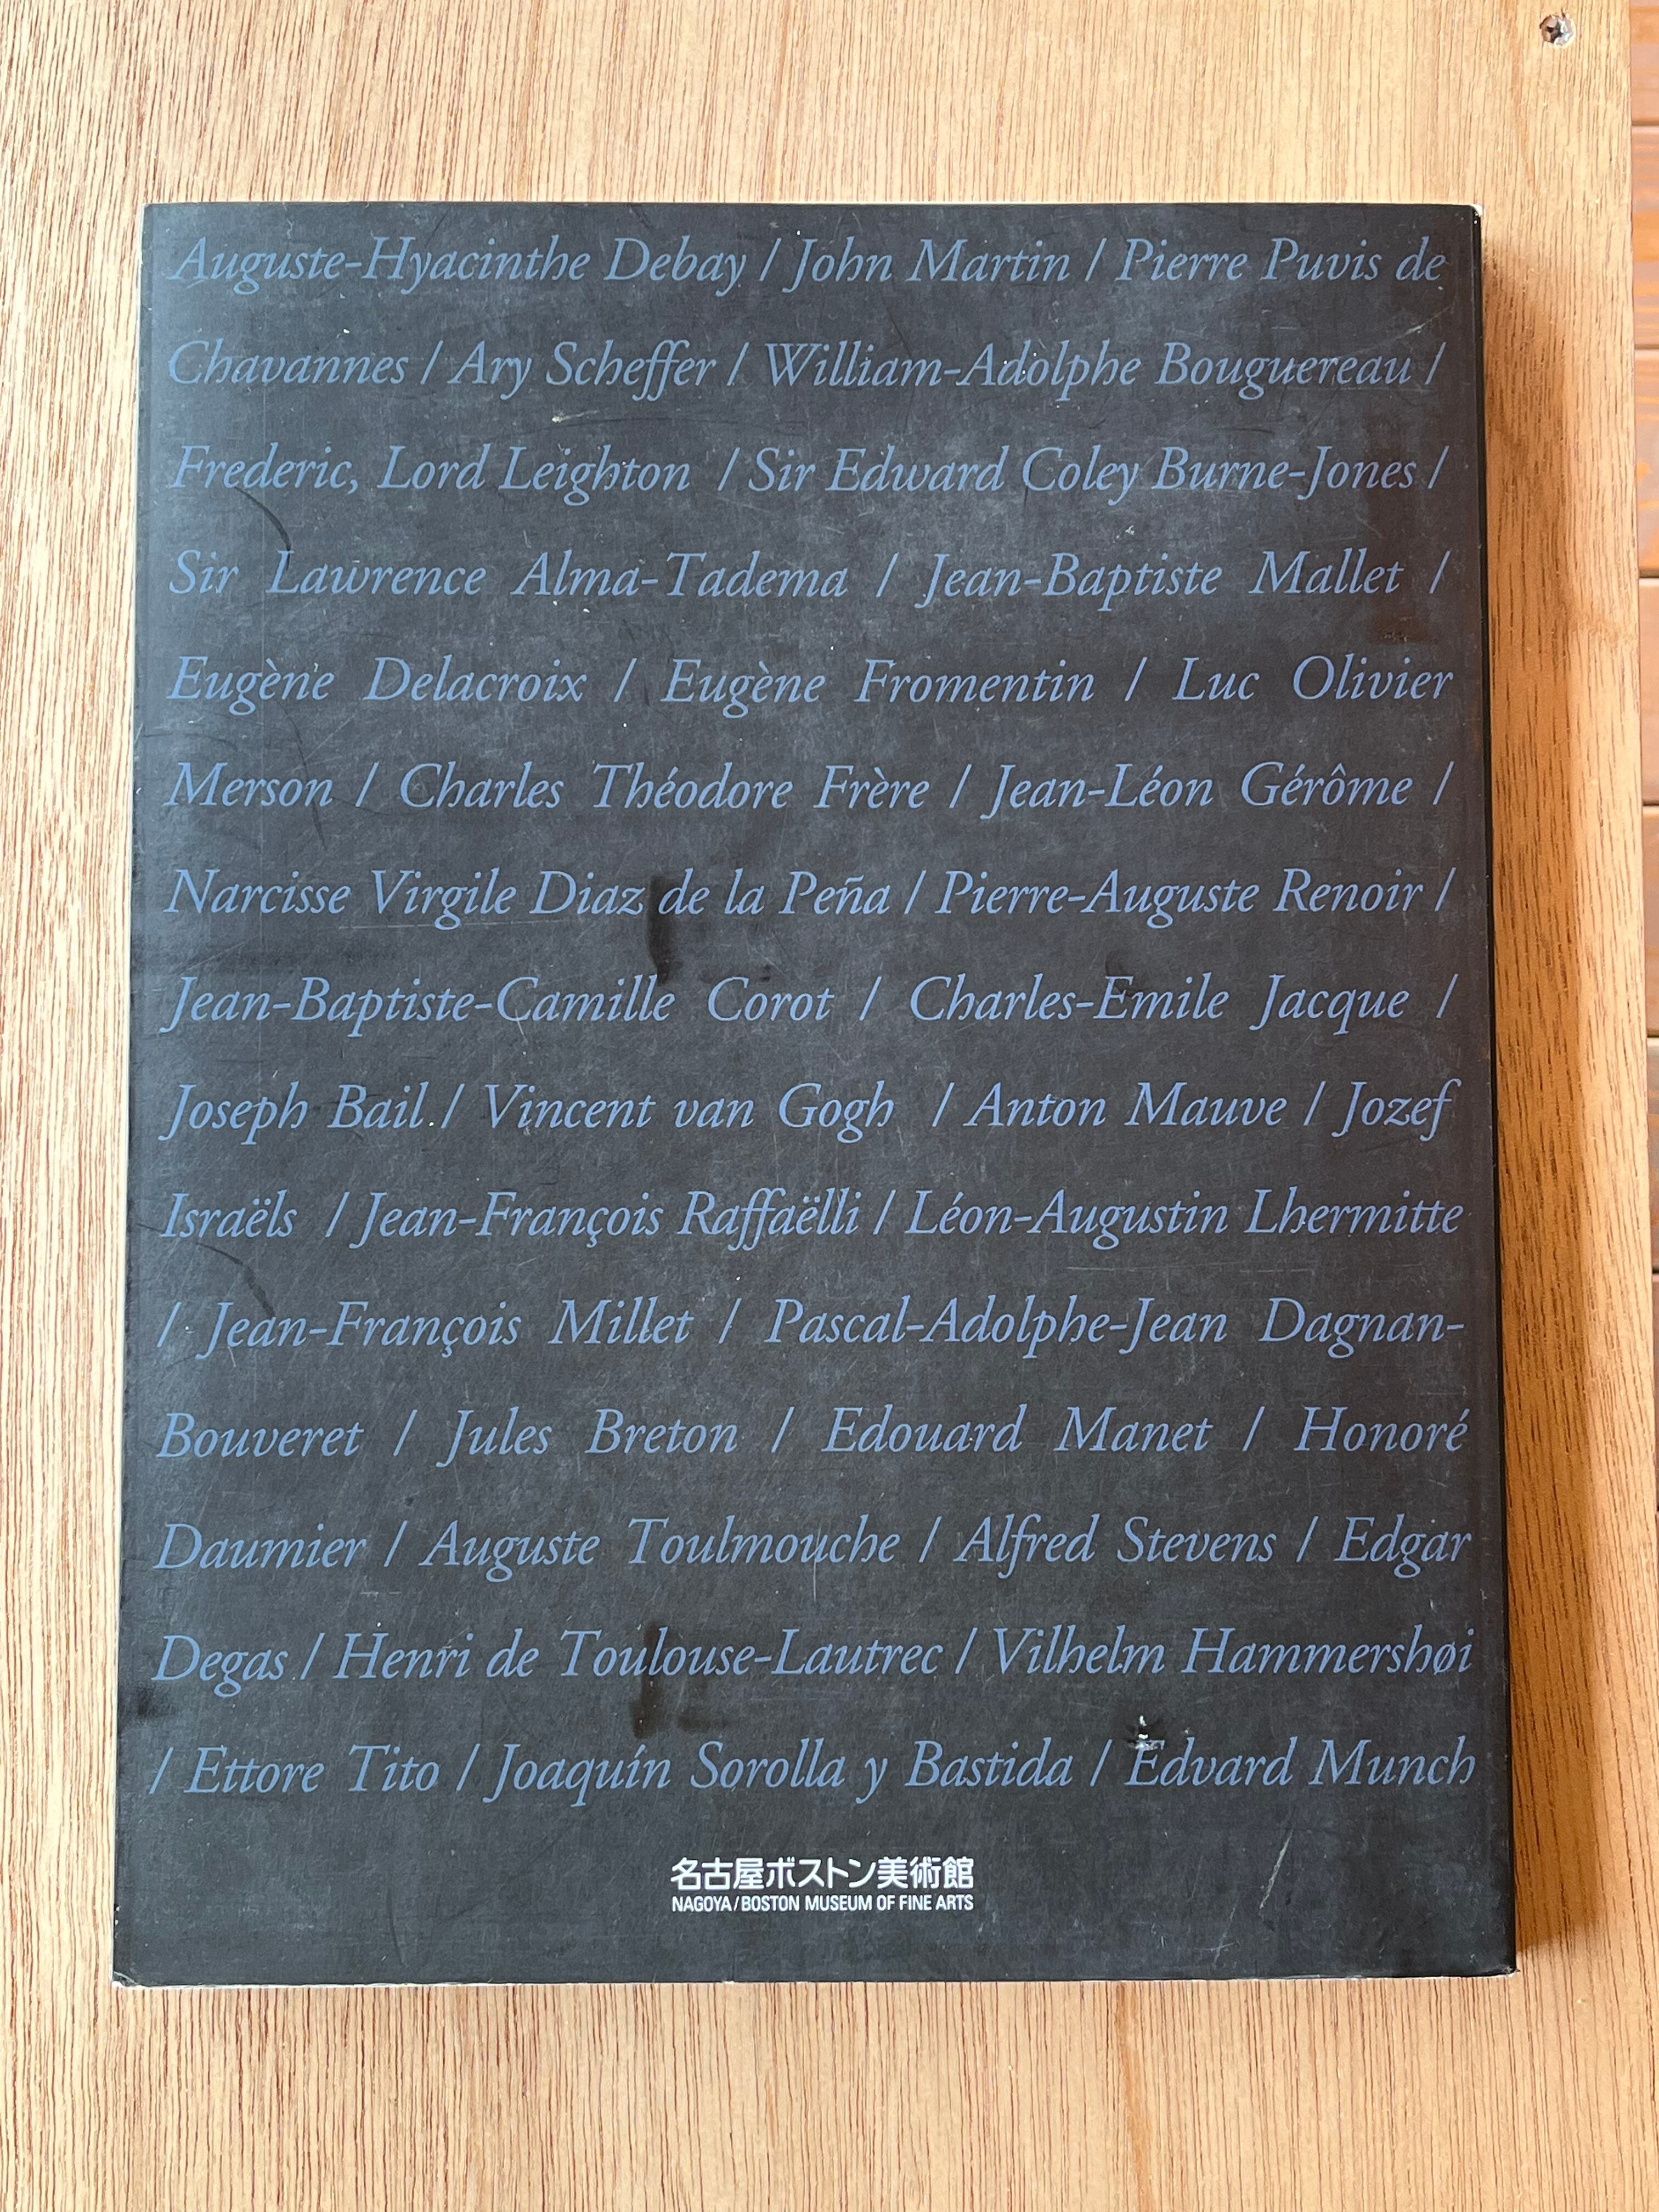 Auguste-Hyacinthe Debay / John Martin / Pierre Puvis de
Chavannes / Ary Scheffer / William-Adolphe Bouguereau /
Frederic, Lord Leighton / Sir Edward Coley Burne-Jones /
Sir Lawrence Alma-Tadema / Jean-Baptiste Mallet /
Eugène Delacroix / Eugène Fromentin / Luc Olivier
Merson / Charles Théodore Frère / Jean-Léon Gérôme /
Narcisse Virgile Diaz de la Peña / Pierre-Auguste Renoir /
Jean-Baptiste-Camille Corot / Charles-Emile Jacque /
Joseph Bail / Vincent van Gogh / Anton Mauve / Jozef
Israëls / Jean-François Raffaëlli / Léon-Augustin Lhermitte
/ Jean-François Millet / Pascal-Adolphe-Jean Dagnan-
Bouveret / Jules Breton / Edouard Manet / Honoré
Daumier / Auguste Toulmouche / Alfred Stevens / Edgar
Degas / Henri de Toulouse-Lautrec / Vilhelm Hammershøi
/ Ettore Tito / Joaquín Sorolla y Bastida / Edvard Munch
名古屋ボストン美術館
NAGOYA/BOSTON MUSEUM OF FINE ARTS